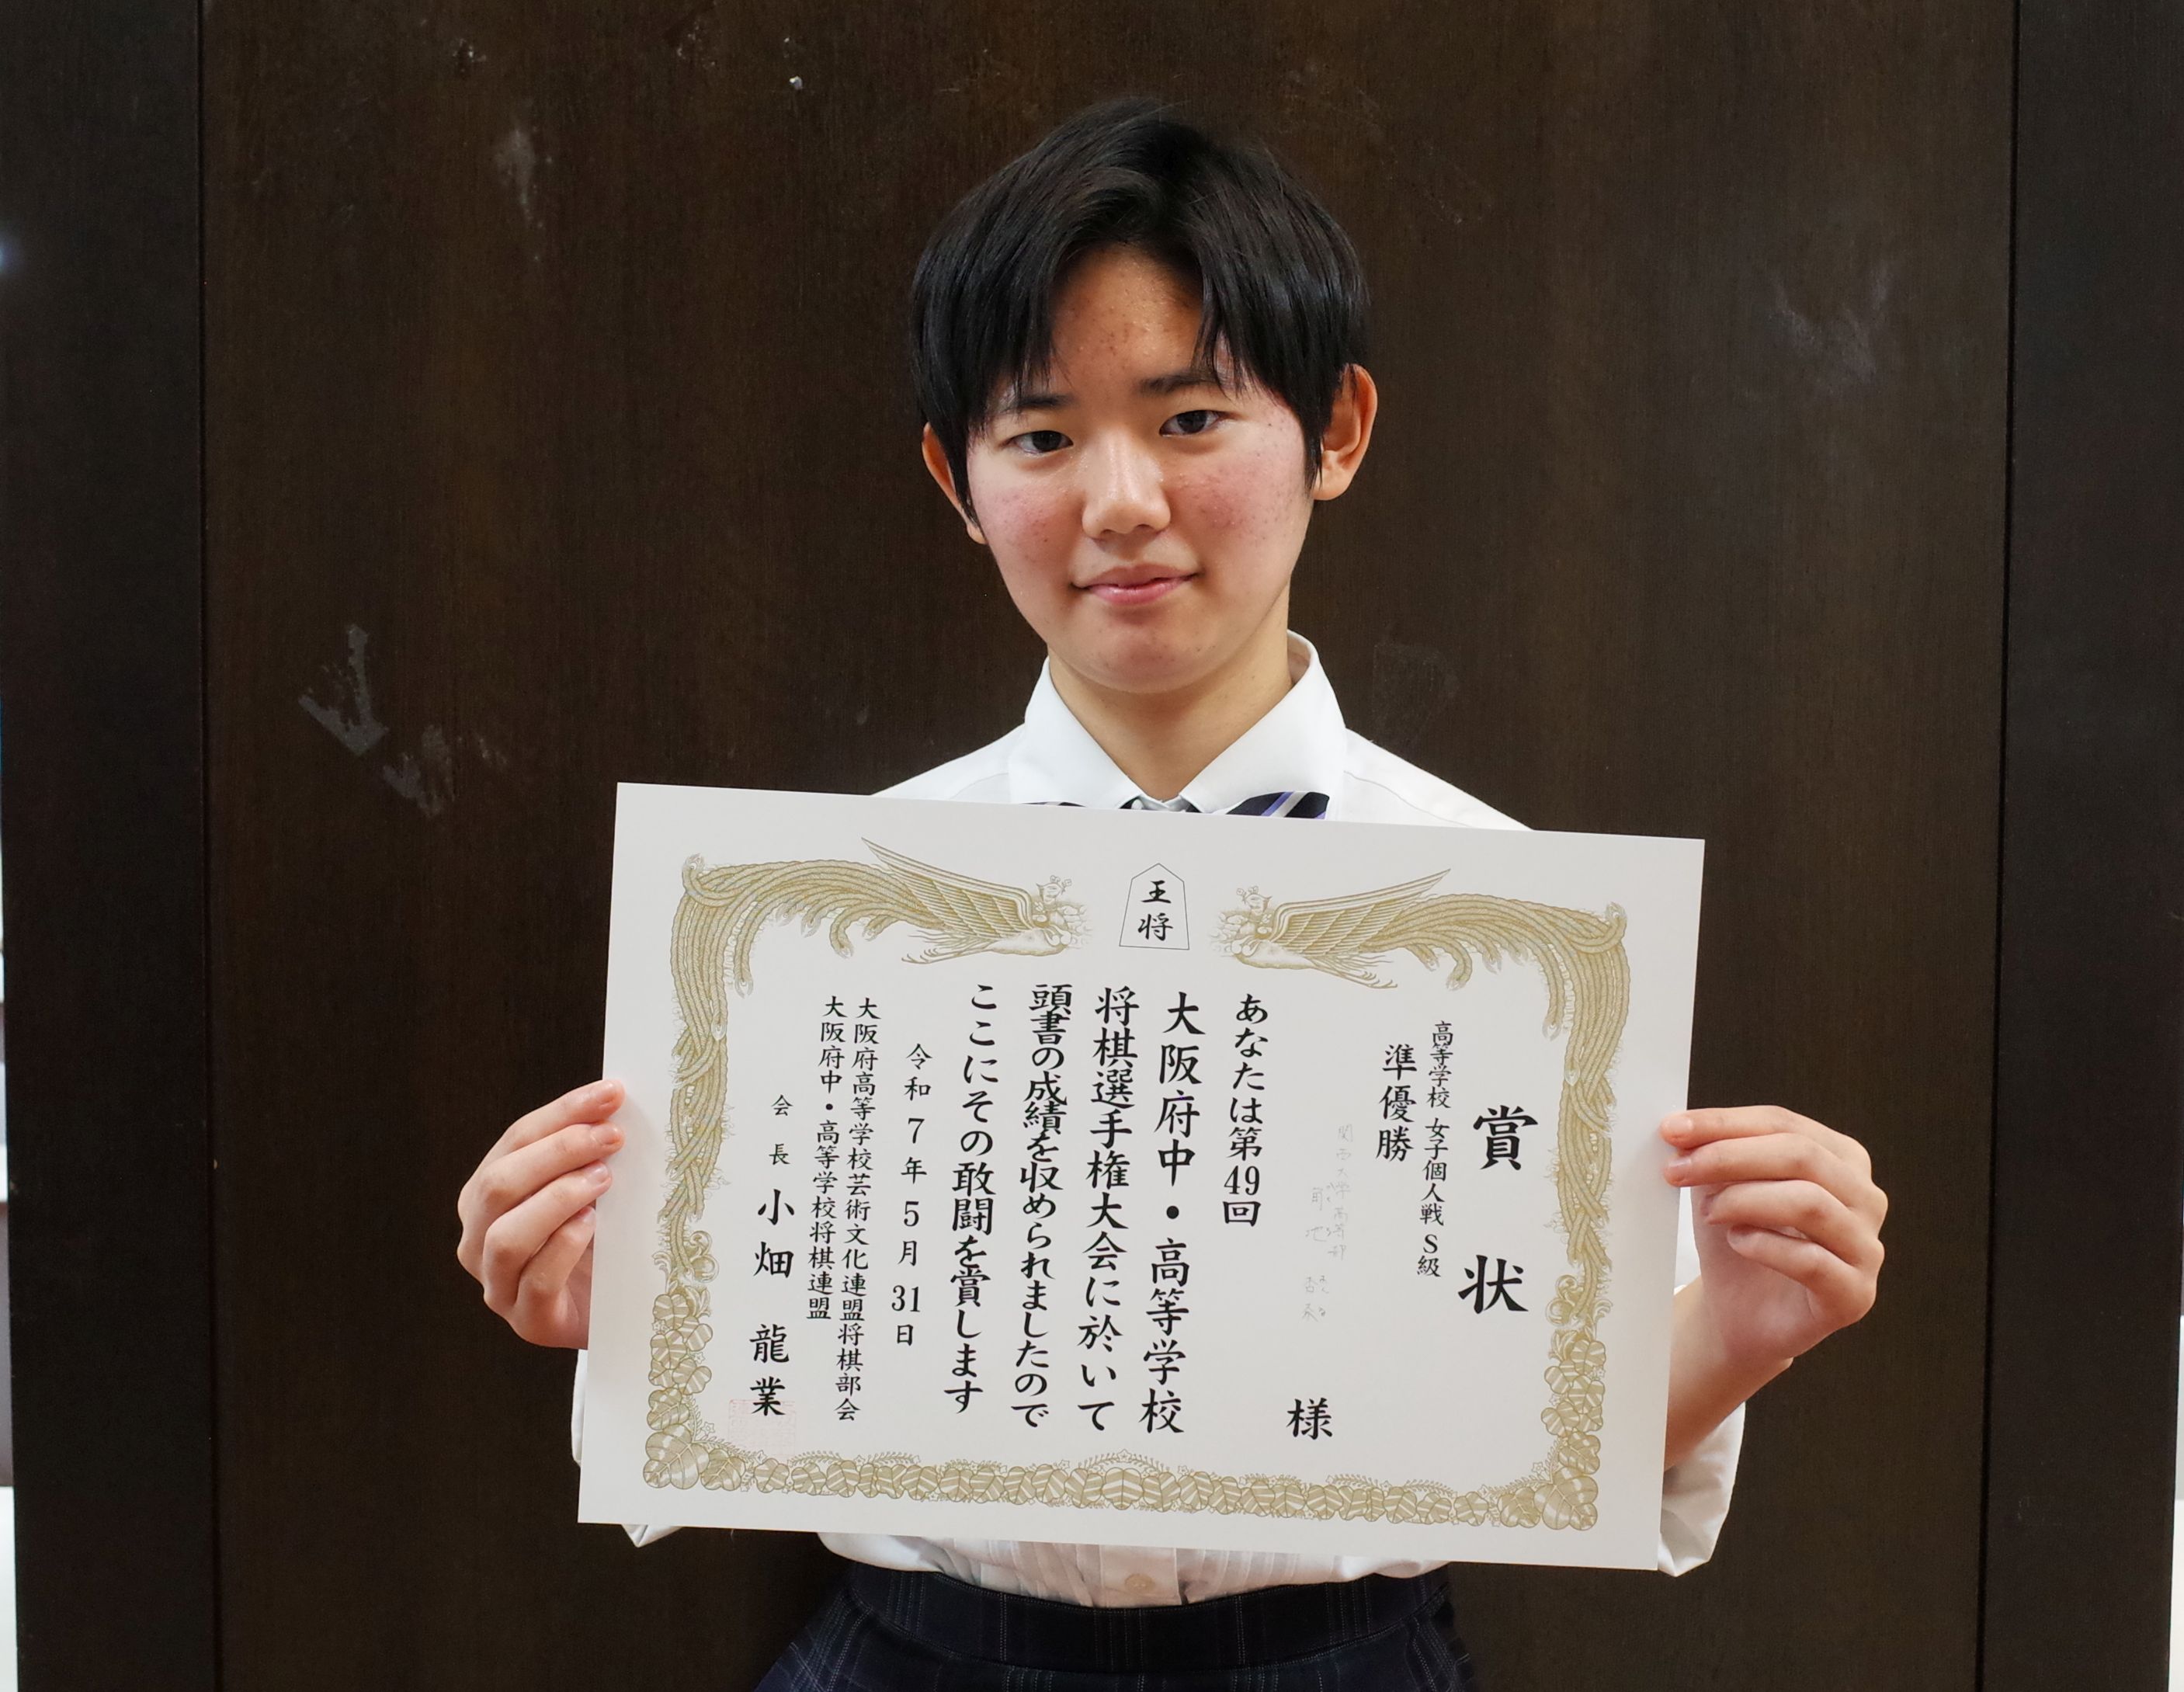 王将
賞状
高等学校 女子個人戦 S級
準優勝
様
あなたは第49回
大阪府中・高等学校
将棋選手権大会に於いて
頭書の成績を収められましたので
ここにその敢闘を賞します
令和7年5月31日
大阪府高等学校芸術文化連盟将棋部会
大阪府中・高等学校将棋連盟
会長 小畑 龍業